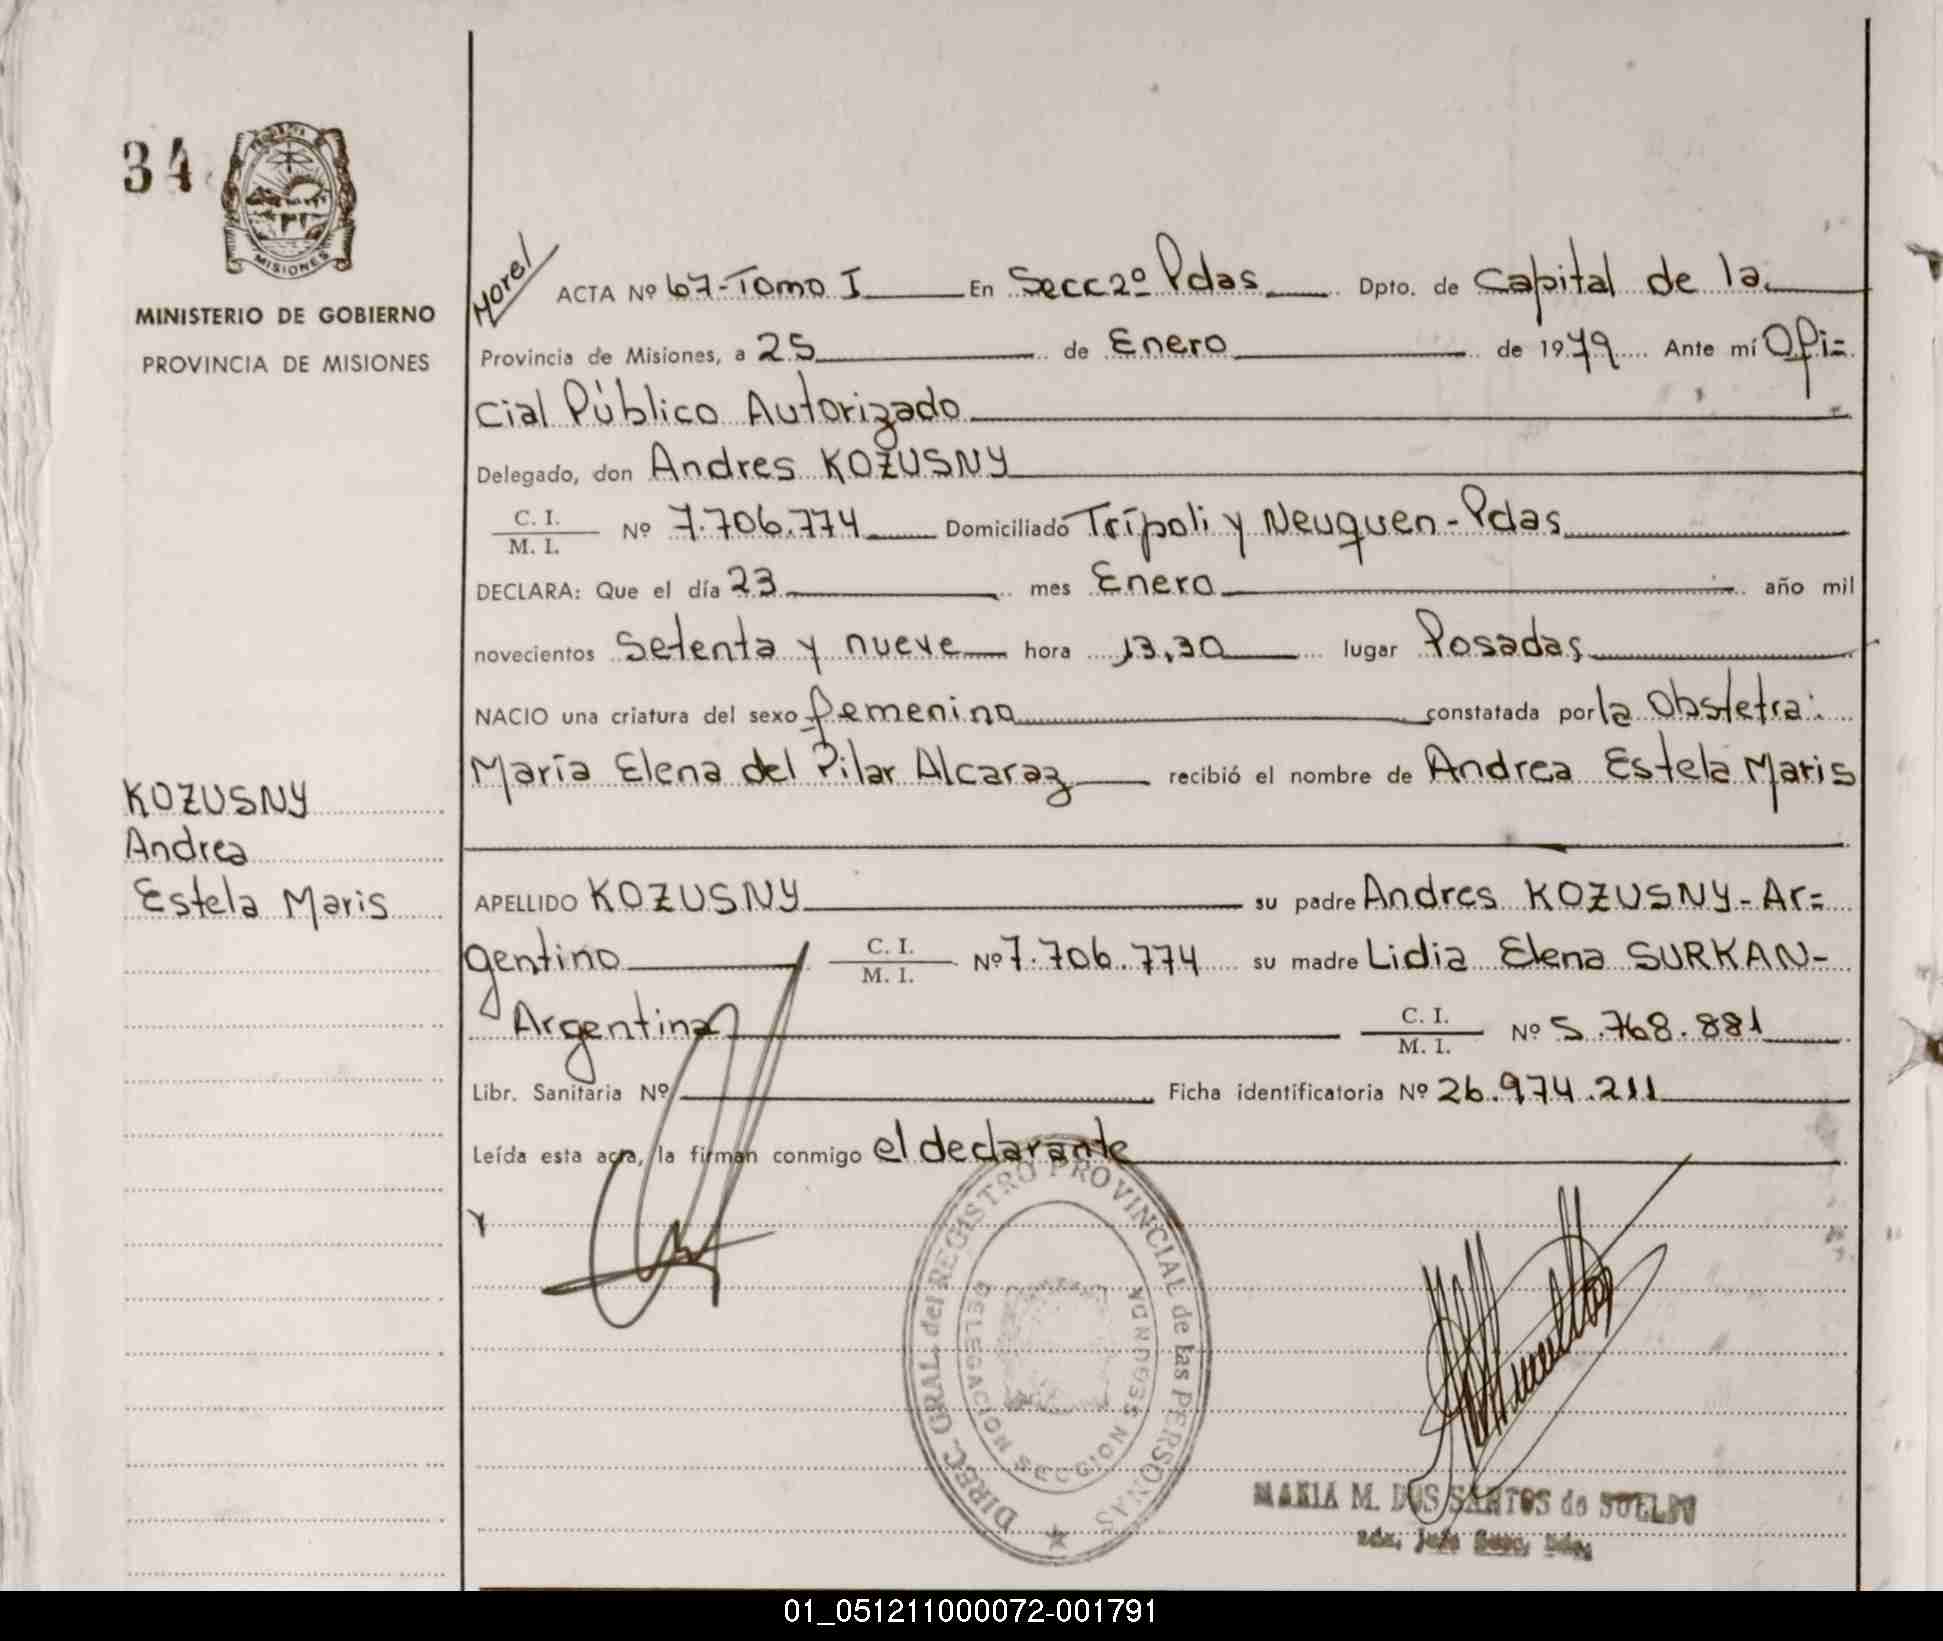 34
MISIONES
MINISTERIO DE GOBIERNO
PROVINCIA DE MISIONES
KOZUSNY
Andrea
Estela Maris
Morel
ACTA Nº 67-Tomo I En Secc 2º Pdas Dpto. de Capital de la
Provincia de Misiones, a 25 de Enero de 1979 Ante mí Ofi=
cial Público Autorizado
Delegado, don Andres KOZUSNY
C. I.
M. I. Nº 7.706.774 Domiciliado Trípoli y Neuquen - Pdas
DECLARA: Que el día 23 mes Enero año mil
novecientos setenta y nueve hora 13,30 lugar Posadas
NACIO una criatura del sexo femenino constatada por la Obstetra:
María Elena del Pilar Alcaraz recibió el nombre de Andrea Estela Maris
APELLIDO KOZUSNY su padre Andres KOZUSNY - Ar=
gentino C. I. M. I. Nº 7.706.774 su madre Lidia Elena SURKAN -
Argentina C. I. M. I. Nº 5.768.881
Libr. Sanitaria Nº Ficha identificatoria Nº 26.974.211
Leída esta acta, la firman conmigo el declarante
DIREC. GRAL. del REGISTRO PROVINCIAL de las PERSONAS
DELEGACION SECCION SEGUNDA
MARIA M. DOS SANTOS de SUELDO
01_051211000072-001791